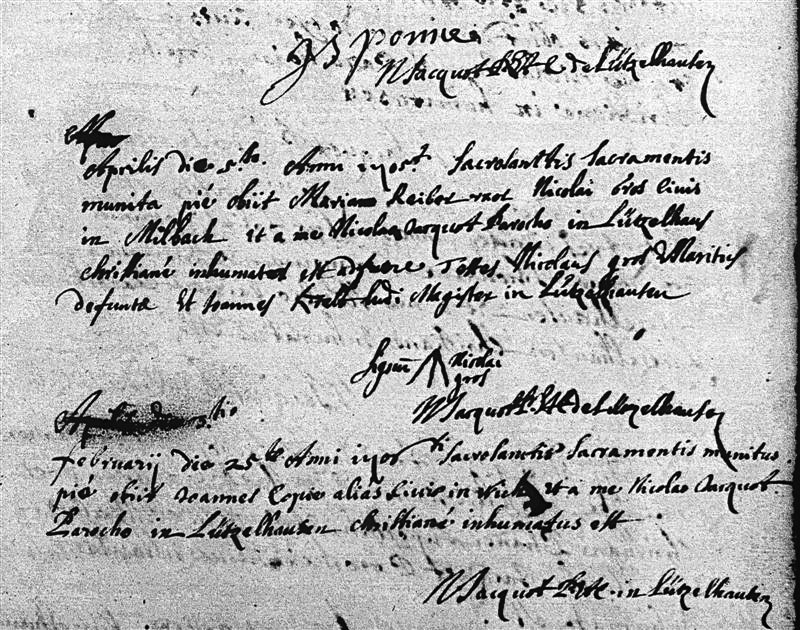 N Jacquot de Lützelhausen
Aprilis die 5ta Anni 1705ti Sacrosanctis Sacramentis
munita pié obiit Maria Reibel Nicolai Gros Civis
in Milbach et a me Nicolao Jacquot Parocho in Lützelhaus
christiané inhumata est Testes Nicolaus gros Maritus
defunctæ Et Joannes ludi Magister in Lützelhausen
Signum Nicolai
gros
N Jacquot de Lützelhausen
februarij die 25ta Anni 1706ti Sacrosanctis Sacramentis munitus
pié obiit Joannes Copie alias Civis in et a me Nicolao Jacquot
Parocho in Lützelhausen christiané inhumatus est
N Jacquot in Lützelhausen